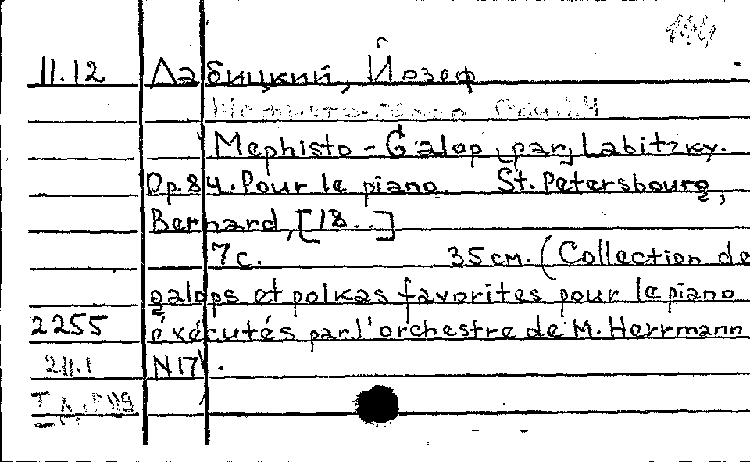 11.12 Лабицкий, Йозеф
Mephisto - Galop [par] Labitzky.
Op. 84. Pour le piano. St. Petersbourg,
Bernard, [18..]
7 с. 35 см. (Collection de
galops et polkas favorites pour le piano
2255 éxécutés par l'orchestre de M. Herrmann
211.1 N 17).